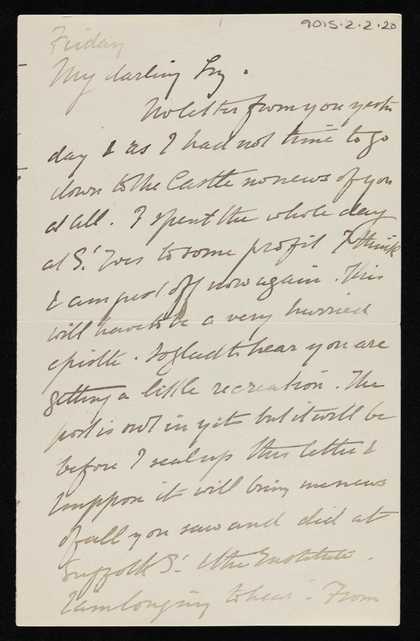 9015-2-2-20
Friday
My darling Ivy.
No letter from you yester
day & as I had not time to go
down to the Castle no news of you
at all. I spent the whole day
at St. Ives to some profit I think
& am just off now again. This
will have to be a very hurried
epistle. So glad to hear you are
getting a little recreation. The
post is not in yet but it will be
before I seal up this letter &
I suppose it will bring me news
of all you saw and did at
Suffolk St. & the Institute.
I am longing to hear. From